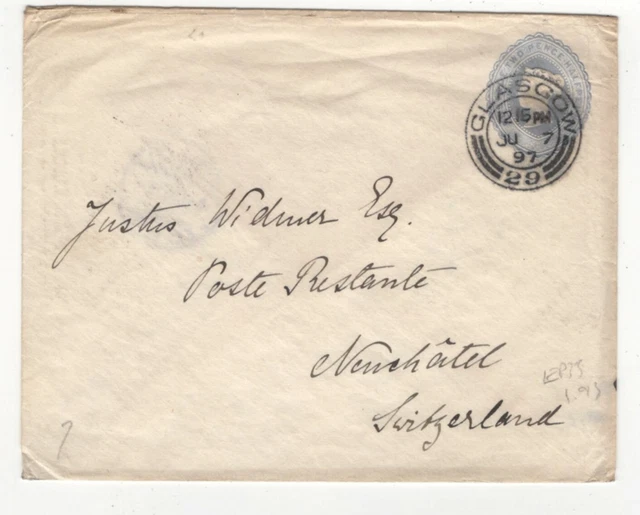 TWO PENCE HALF
GLASGOW
12 15 PM
JU 7
97
29
Justus Widmer Esq.
Poste Restante
Neuchâtel
Switzerland